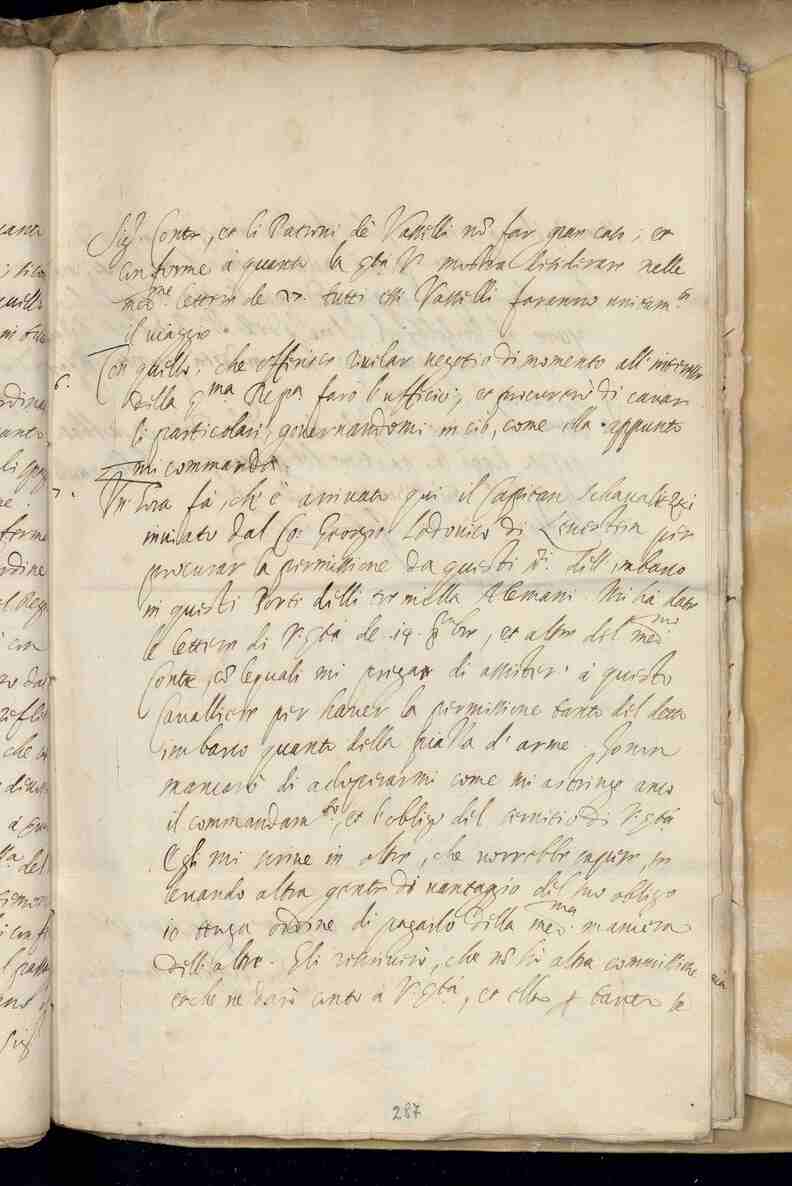 Sig.r Conte, et li Patroni de Vasselli nō far gran caso; et
conforme à quanto la S.tà V. mostra desiderare nelle
med.me lettere de 27. tutti essi Vasselli faranno unitam.te
il viaggio.
6. Con quello, che offerisce svelar negotio di momento all'interesse
della S.ma Rep.ca farò l'ufficio, et procurerò di cavar
li particolari, governandomi in ciò, come ella appunto
mi commanda.
7. Un'hora fà, ch'è arrivato qui il Capitan
inviato dal Co: Georgio Lodovico di per
procurar la permissione da questi S.ri dell'imbarco
in questi Porti delli tremella Alemani. Mi hà dato
le lettere di V. S.tà de 19. 8bre, et altre del med.mo
Conte, cō lequali mi prega di assister à questo
Cavalliere per haver la permissione tanto del detto
imbarco quanto della piazza d'arme. Io non
mancarò di adoperarmi come mi astringe anco
il commandam.to, et l'obligo del servitio di V. S.tà
Egli mi scrive in oltre, che vorrebbe sapere, se
levando altra gente di vantaggio del suo obligo
io tenga ordine di pagarlo della med.ma maniera
dell'altre. Gli rescriverò, che nō hò altra commissione
et che ne darò conto à V. S.tà, et ella per tanto se
287